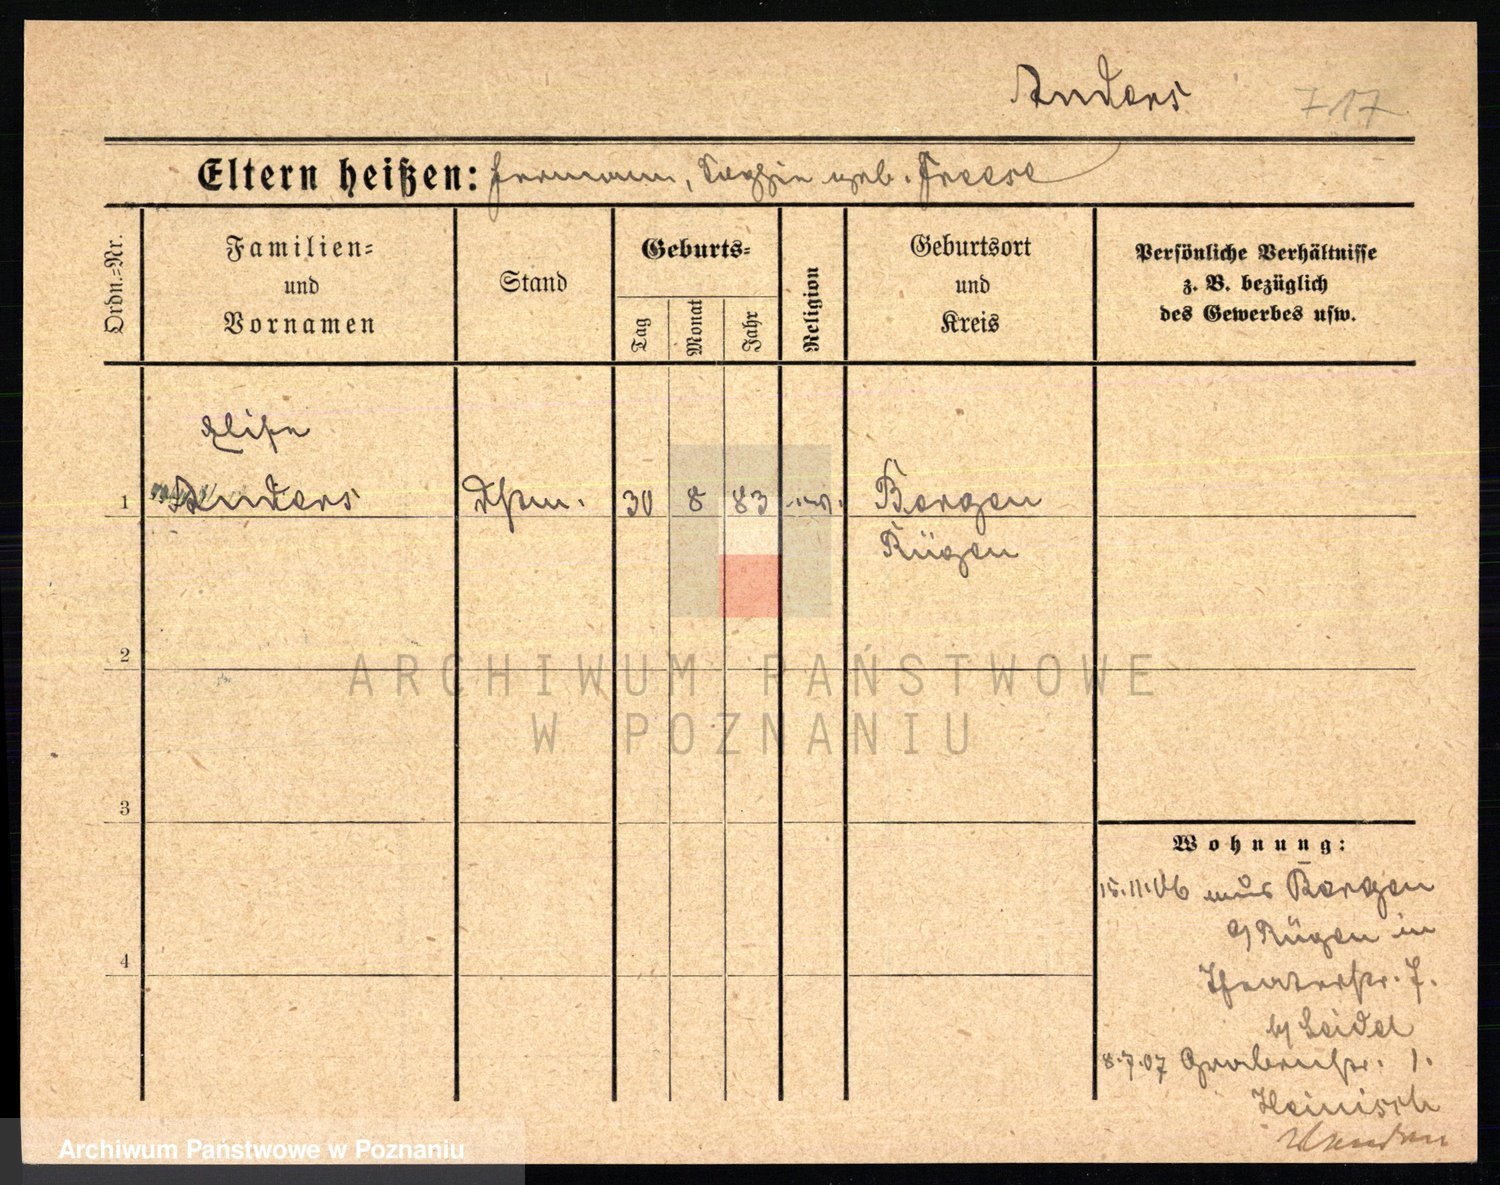 Anders 717
Eltern heißen: Hermann, Sophie geb. Freese
Ordn.=Nr.
Familien=
und
Vornamen
Stand
Geburts=
Tag
Monat
Jahr
Religion
Geburtsort
und
Kreis
Persönliche Verhältnisse
z. B. bezüglich
des Gewerbes usw.
Elise
1 Anders 30 8 83 ev. Bergen
Rügen
2
ARCHIWUM PAŃSTWOWE
W POZNANIU
3
Wohnung:
15.11.06 aus Bergen
a/Rügen in
Theaterstr. 7.
b/ Seidel
4
8.7.07 Grabenstr. 1.
Heinisch
Archiwum Państwowe w Poznaniu